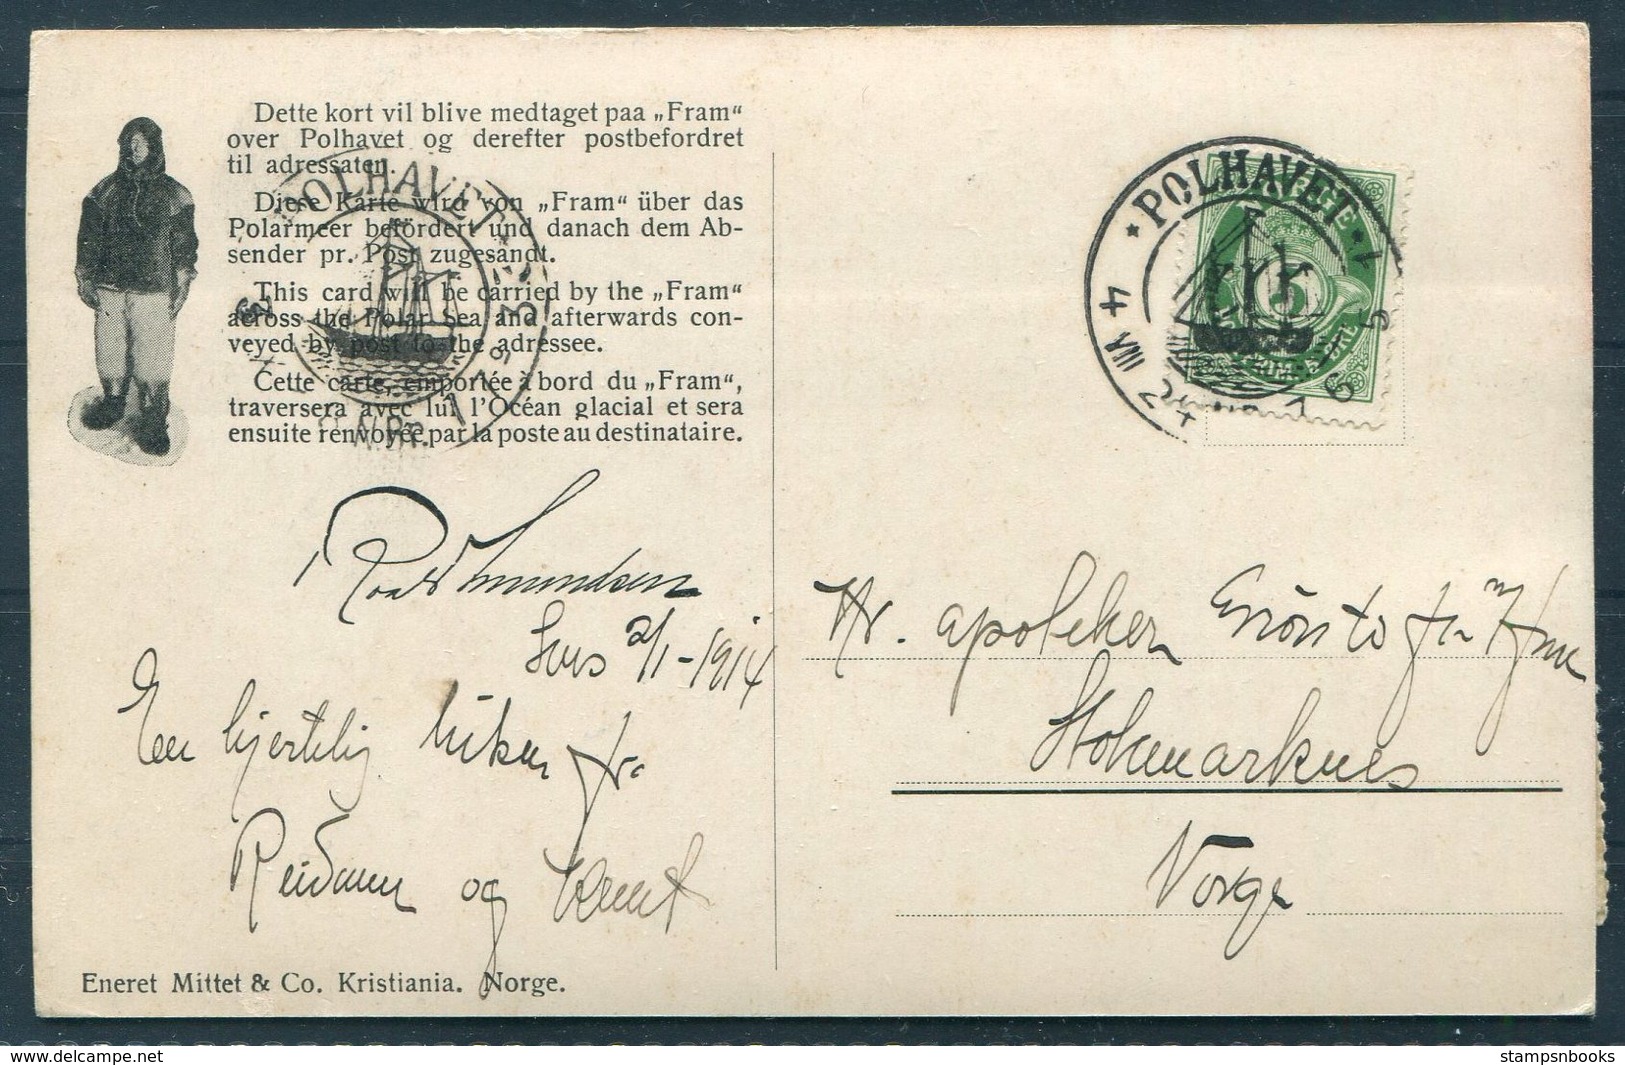 Dette kort vil blive medtaget paa „Fram"
over Polhavet og derefter postbefordret
til adressaten.
Diese Karte wird von „Fram" über das
Polarmeer befördert und danach dem Ab-
sender pr. Post zugesandt.
This card will be carried by the „Fram"
across the Polar Sea and afterwards con-
veyed by post to the adressee.
Cette carte, emportée à bord du „Fram",
traversera avec lui l'Océan glacial et sera
ensuite renvoyée par la poste au destinataire.
POLHAVET
POLHAVET
NORGE
5
Roald Amundsen
2/1-1914
En hjertelig hilsen fra
Reidunn og Knut
Hr. apoteker
Stokmarknes
Norge
Eneret Mittet & Co. Kristiania. Norge.
www.delcampe.net
stampsnbooks